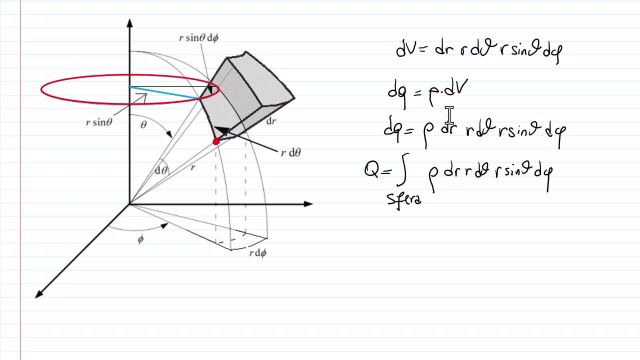 r sinθ dϕ
r sinθ
θ
dr
r dθ
dθ
r
ϕ
r dϕ
dV = dr r dϑ r sinϑ dφ
dq = ρ·dV
dq = ρ dr r dϑ r sinϑ dφ
Q = ∫ ρ dr r dϑ r sinϑ dφ
sfera